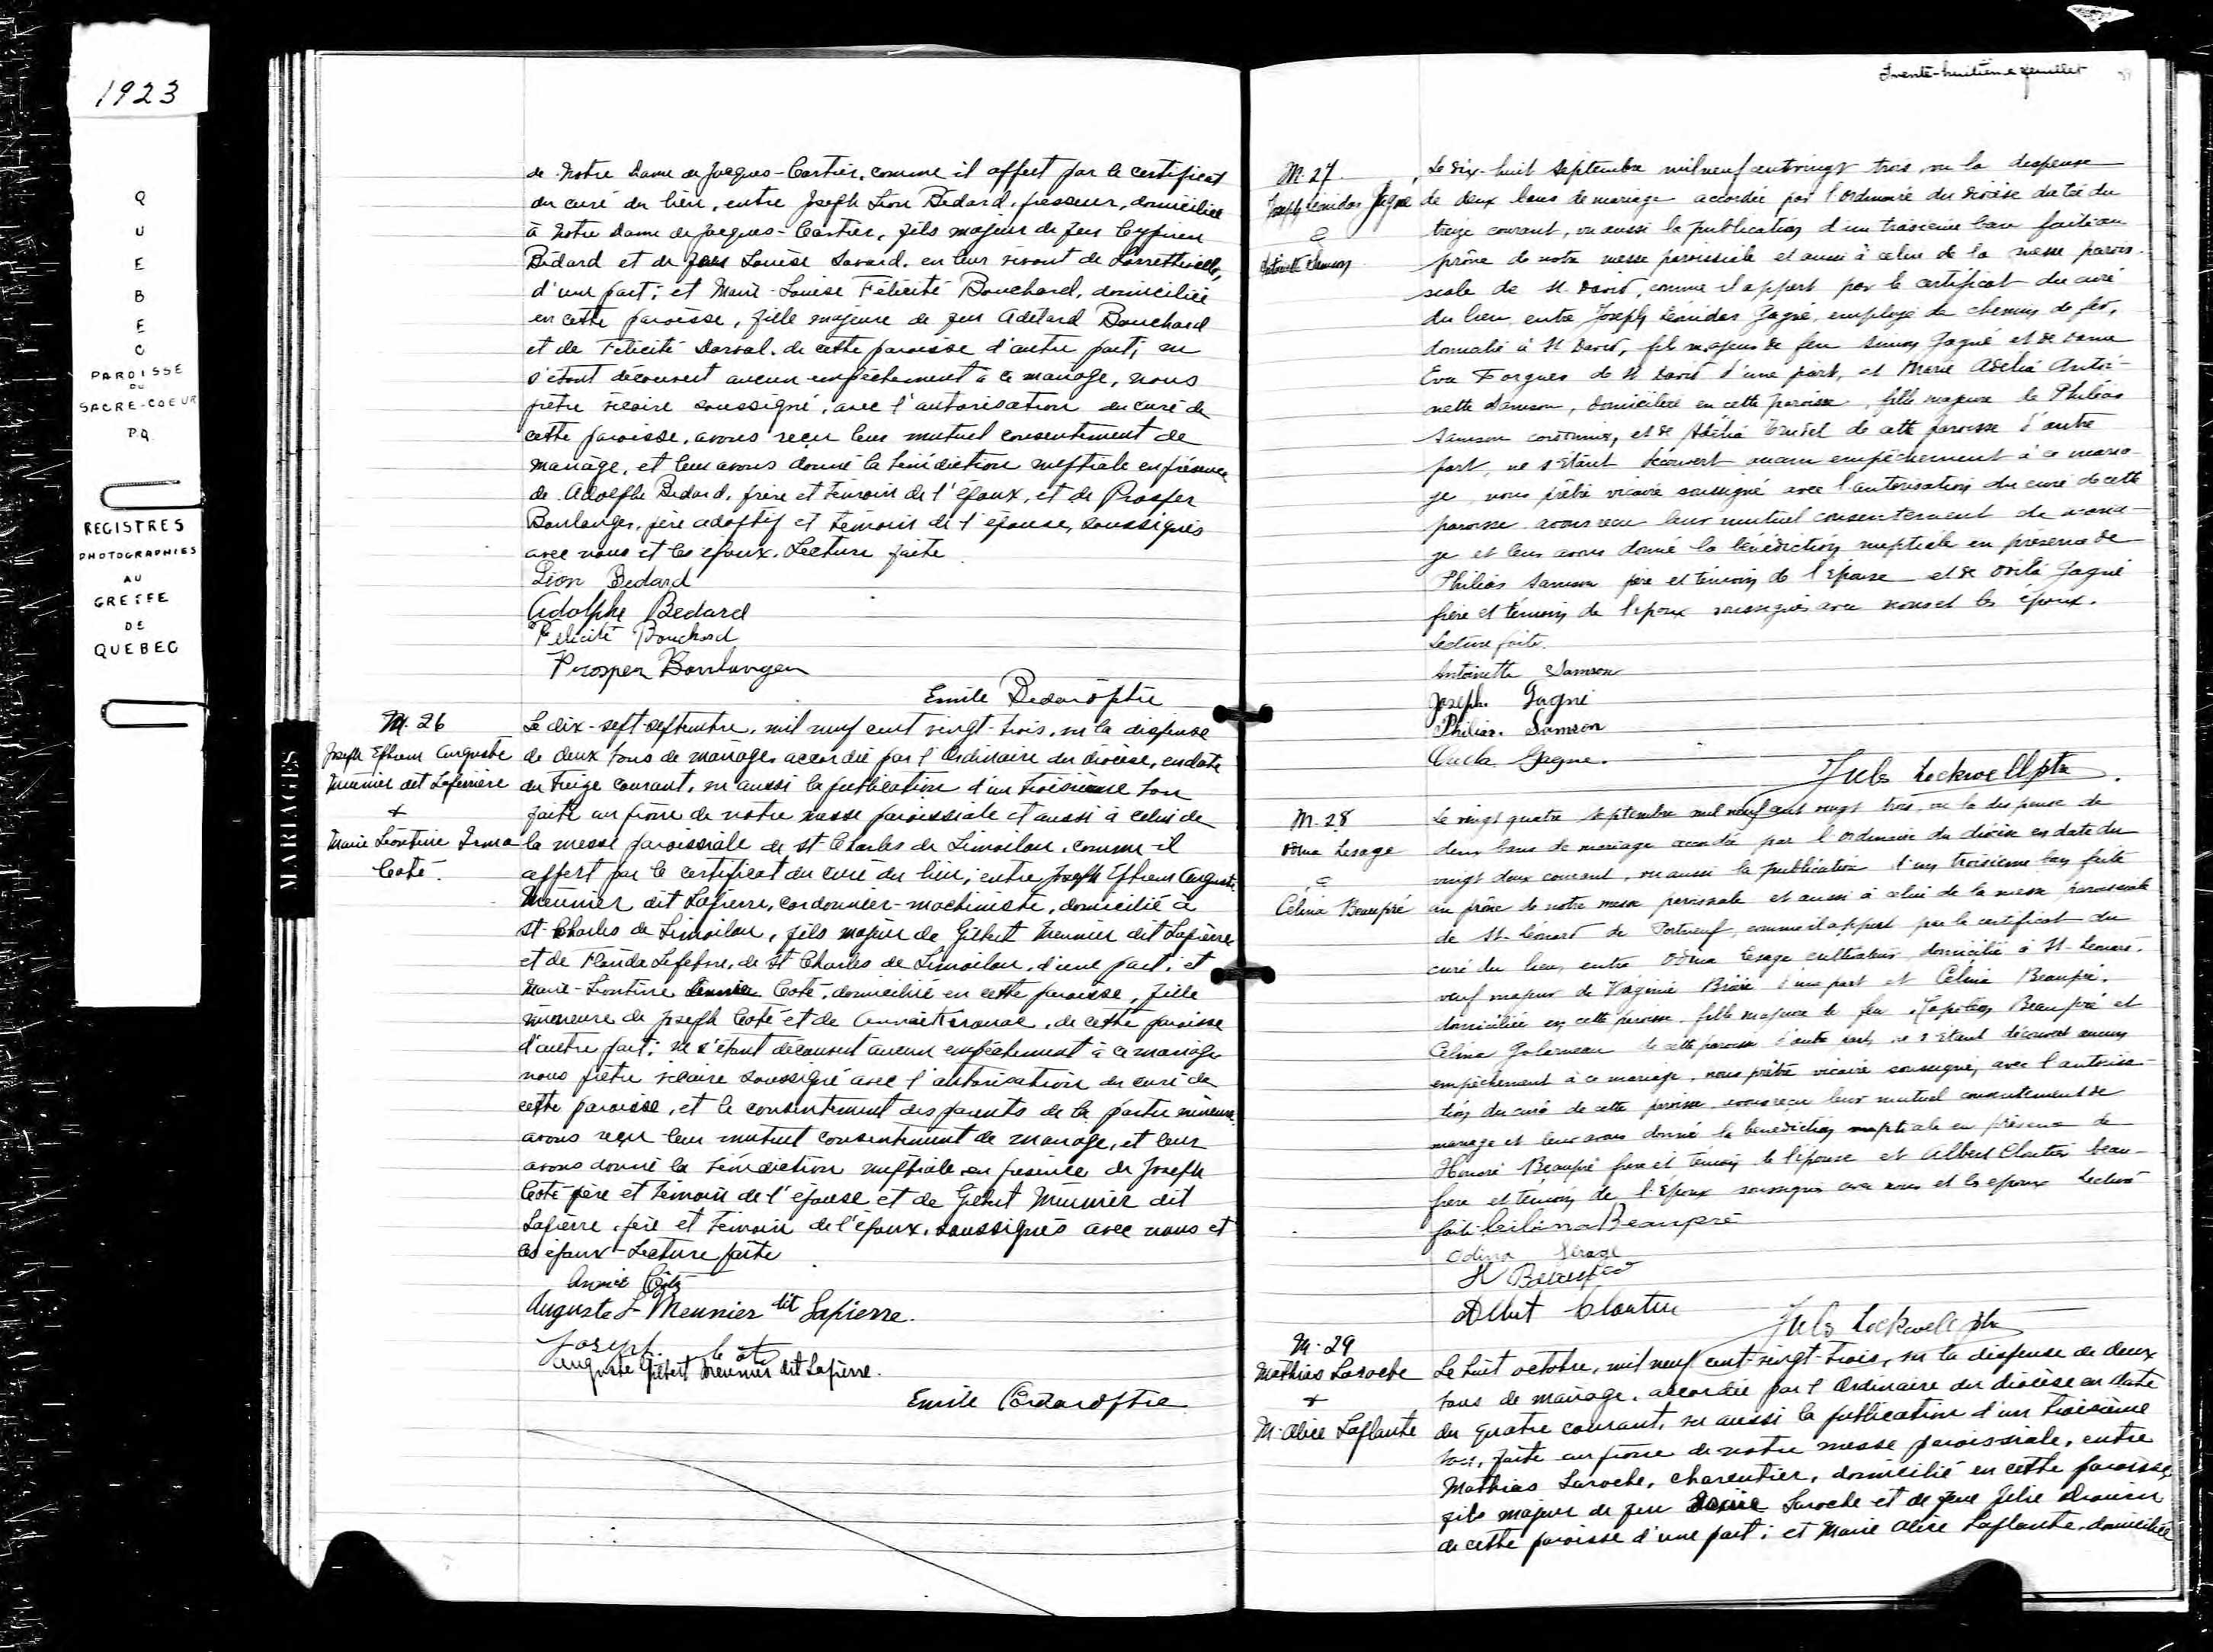 1923
QUEBEC
PAROISSE
DU
SACRE-COEUR
P.Q.
REGISTRES
PHOTOGRAPHIES
AU
GREFFE
DE
QUEBEC
MARIAGES
de Notre Dame de Jacques-Cartier, comme il appert par le certificat
du curé du lieu, entre Joseph Léon Bedard, presseur, domicilié
à Notre Dame de Jacques-Cartier, fils majeur de feu Cyprien
Bédard et de feue Louise Savard, en leur vivant de Lorretteville,
d'une part; et Marie-Louise Félicité Bouchard, domiciliée
en cette paroisse, fille majeure de feu Adélard Bouchard
et de Félicité Dorval, de cette paroisse d'autre part; ne
s'étant découvert aucun empêchement à ce mariage, nous
prêtre vicaire soussigné, avec l'autorisation du curé de
cette paroisse, avons reçu leur mutuel consentement de
mariage, et leur avons donné la bénédiction nuptiale en présence
de Adolphe Bedard, frère et témoin de l'époux, et de Prosper
Boulanger, père adoptif et témoin de l'épouse, soussignés
avec nous et les époux. Lecture faite
Léon Bedard
Adolphe Bedard
Félicité Bouchard
Prosper Boulanger
Emile Bedard ptre
M. 26
Joseph Ephrem Auguste
Meunier dit Lapierre
+
Marie Léontine Irma
Coté.
Le dix-sept septembre, mil neuf cent vingt-trois, vu la dispense
de deux bans de mariage, accordée par l'Ordinaire du diocèse, en date
du treize courant, vu aussi la publication d'un troisième ban
faite au prône de notre messe paroissiale et aussi à celui de
la messe paroissiale de St Charles de Limoilou, comme il
appert par le certificat du curé du lieu; entre Joseph Ephrem Auguste
Meunier dit Lapierre, cordonnier-machiniste, domicilié à
St-Charles de Limoilou, fils majeur de Gilbert Meunier dit Lapierre
et de Florida Lefebvre, de St Charles de Limoilou, d'une part; et
Marie-Léontine Coté, domiciliée en cette paroisse, fille
mineure de Joseph Coté et de, de cette paroisse
d'autre part; ne s'étant découvert aucun empêchement à ce mariage
nous prêtre vicaire soussigné avec l'autorisation du curé de
cette paroisse, et le consentement des parents de la partie mineure
avons reçu leur mutuel consentement de mariage, et leur
avons donné la bénédiction nuptiale en présence de Joseph
Coté père et témoin de l'épouse et de Gilbert Meunier dit
Lapierre, père et témoin de l'époux, soussignés avec nous et
les époux-Lecture faite
Annie Côté
Auguste L- Meunier dit Lapierre.
Joseph Côté
Auguste Gilbert Meunier dit Lapierre.
Emile Bédard ptre
Trente-huitième feuillet
M. 27
Joseph Léonidas Gagné
&
Antoinette Samson
Le dix-huit septembre mil neuf cent vingt trois, vu la dispense
de deux bans de mariage accordée par l'Ordinaire du diocèse datée du
treize courant, vu aussi la publication d'un troisième ban faite au
prône de notre messe paroissiale et aussi à celui de la messe parois-
siale de St. David, comme il appert par le certificat du curé
du lieu, entre Joseph Léonidas Gagné, employé de chemin de fer,
domicilié à St David, fils majeur de feu Simon Gagné et de dame
Eva Forgues de St David d'une part, et Marie Adélia Antoi-
nette Samson, domiciliée en cette paroisse, fille majeure de Philéas
Samson cordonnier, et de Adélia Trudel de cette paroisse d'autre
part, ne s'étant découvert aucun empêchement à ce maria-
ge, nous prêtre vicaire soussigné avec l'autorisation du curé de cette
paroisse avons reçu leur mutuel consentement de maria-
ge et leur avons donné la bénédiction nuptiale en présence de
Philéas Samson père et témoin de l'épouse et de Ovila Gagné
frère et témoin de l'époux soussignés avec nous et les époux.
Lecture faite.
Antoinette Samson
Joseph Gagné
Philias Samson
Gagne.
Jules Lockwell ptre.
M. 28
Odina Lesage
&
Célina Beaupré
Le vingt quatre septembre mil neuf cent vingt trois, vu la dispense de
deux bans de mariage accordée par l'Ordinaire du diocèse en date du
vingt deux courant, vu aussi la publication d'un troisième ban faite
au prône de notre messe paroissiale et aussi à celui de la messe paroissiale
de St-Léonard de Portneuf, comme il appert par le certificat du
curé du lieu, entre Odina Lesage cultivateur domicilié à St-Léonard,
veuf majeur de Virginie d'une part et Célina Beaupré,
domiciliée en cette paroisse, fille majeure de feu Napoléon Beaupré et
Célina Galarneau de cette paroisse d'autre part, ne s'étant découvert aucun
empêchement à ce mariage, nous prêtre vicaire soussigné, avec l'autorisa-
tion du curé de cette paroisse avons reçu leur mutuel consentement de
mariage et leur avons donné la bénédiction nuptiale en présence de
Honoré Beaupré frère et témoin de l'épouse et Albert Cloutier beau-
frère et témoin de l'époux soussignés avec nous et les époux Lecture
faite. Celina Beaupré
Odina Lesage
H Beaupré
Albert Cloutier
Jules Lockwell ptre
M. 29
Mathias Laroche
+
M. Alice Laplante
Le huit octobre, mil neuf cent-vingt-trois, vu la dispense de deux
bans de mariage, accordée par l'Ordinaire du diocèse en date
du quatre courant, vu aussi la publication d'un troisième
ban, faite au prône de notre messe paroissiale, entre
Mathias Laroche, charpentier, domicilié en cette paroisse,
fils majeur de feu Laroche et de feue Julie Drouin
de cette paroisse d'une part; et Marie Alice Laplante, domiciliée